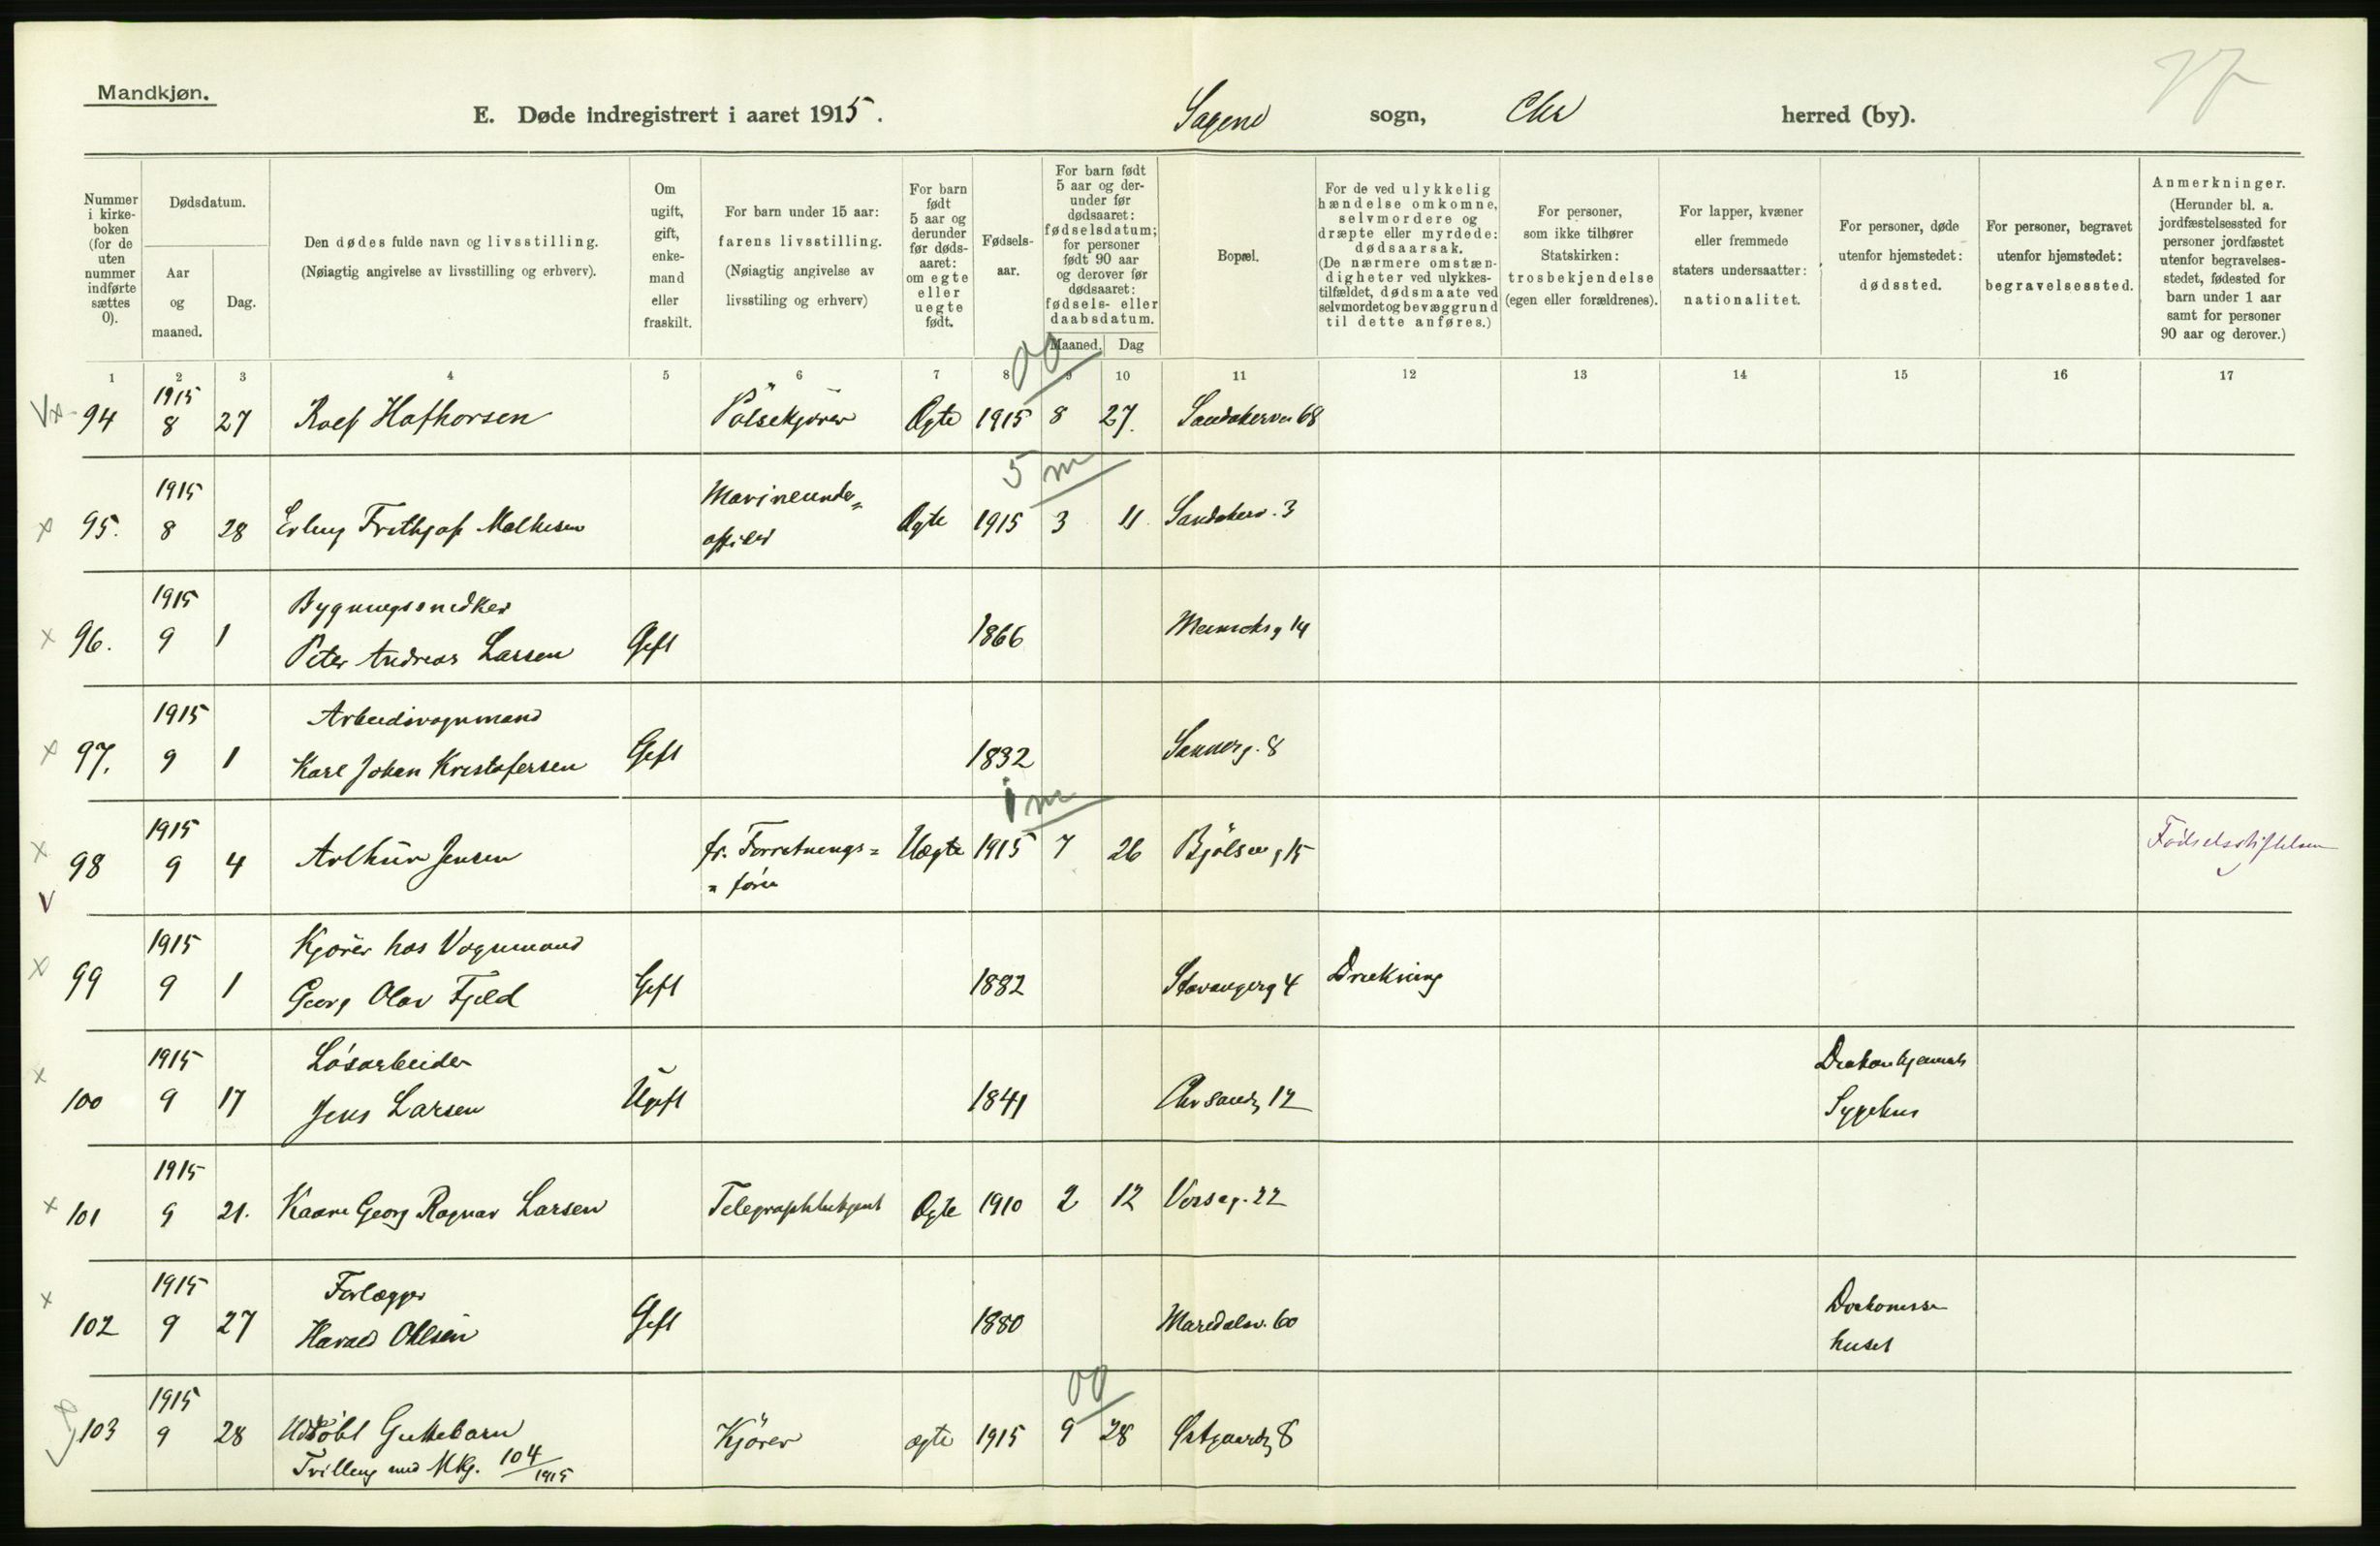 Mandkjøn.
77
E. Døde indregistrert i aaret 1915. Sagene sogn, Chr herred (by).
Nummer i kirke-boken (for de uten nummer indførte sættes 0).
Dødsdatum.
Aar og maaned.
Dag.
Den dødes fulde navn og livsstilling.
(Nøiagtig angivelse av livsstilling og erhverv).
Om ugift, gift, enke-mand eller fraskilt.
For barn under 15 aar: farens livsstilling.
(Nøiagtig angivelse av livsstiling og erhverv)
For barn født 5 aar og derunder før døds-aaret: om egte eller uegte født.
Fødsels-aar.
For barn født 5 aar og der-under før dødsaaret: fødselsdatum; for personer født 90 aar og derover før dødsaaret: fødsels- eller daabsdatum.
Maaned. Dag
Bopæl.
For de ved ulykkelig hændelse omkomne, selvmordere og dræpte eller myrdede: dødsaarsak.
(De nærmere omstæn-digheter ved ulykkes-tilfældet, dødsmaate ved selvmordet og bevæggrund til dette anføres.)
For personer, som ikke tilhører Statskirken: trosbekjendelse (egen eller forældrenes).
For lapper, kvæner eller fremmede staters undersaatter: nationalitet.
For personer, døde utenfor hjemstedet: dødssted.
For personer, begravet utenfor hjemstedet: begravelsessted.
Anmerkninger.
(Herunder bl. a. jordfæstelsessted for personer jordfæstet utenfor begravelses-stedet, fødested for barn under 1 aar samt for personer 90 aar og derover.)
1 2 3 4 5 6 7 8 9 10 11 12 13 14 15 16 17
00
1915
94 8 27 Rolf Hafhorsen Pölsekjörer Ægte 1915 8 27. Sandakerve 68
5 m
1915 Marineunder=
95. 8 28 Erling Frithjof Mathisen officer Ægte 1915 3 11 Sandakerv. 3
1915 Bygningssnedker
96. 9 1 Peter Andreas Larsen Gift 1866 14
1915 Arbeidsvognmand
97. 9 1 Karl Johan Kristofersen Gift 1832 Sannerg. 8
1 m
1915 fr. Forretnings=
98 9 4 Arthur Jensen = förer Uægte 1915 7 26 Bjölseng 15 Födselsstiftelsen
1915 Kjörer hos Vognmand
99 9 1 Georg Olav Fjeld Gift 1882 Stavangerg 4 Drukning
1915 Lösarbeider Diakonhjemmets
100 9 17 Jens Larsen Ugift 1841 Chrsandg 12 Sygehus
1915
101 9 21. Kaare Georg Ragnar Larsen Ægte 1910 2 12 Vossg. 22
1915 Forlægger
102 9 27 Harald Ohlsen Gift 1880 Maridalsv. 60 Diakonisse
huset
00
1915
103 9 28 Udöbt Guttebarn Kjörer ægte 1915 9 28 Østgaardg 8
Tvilling med Mkj. 104/1915